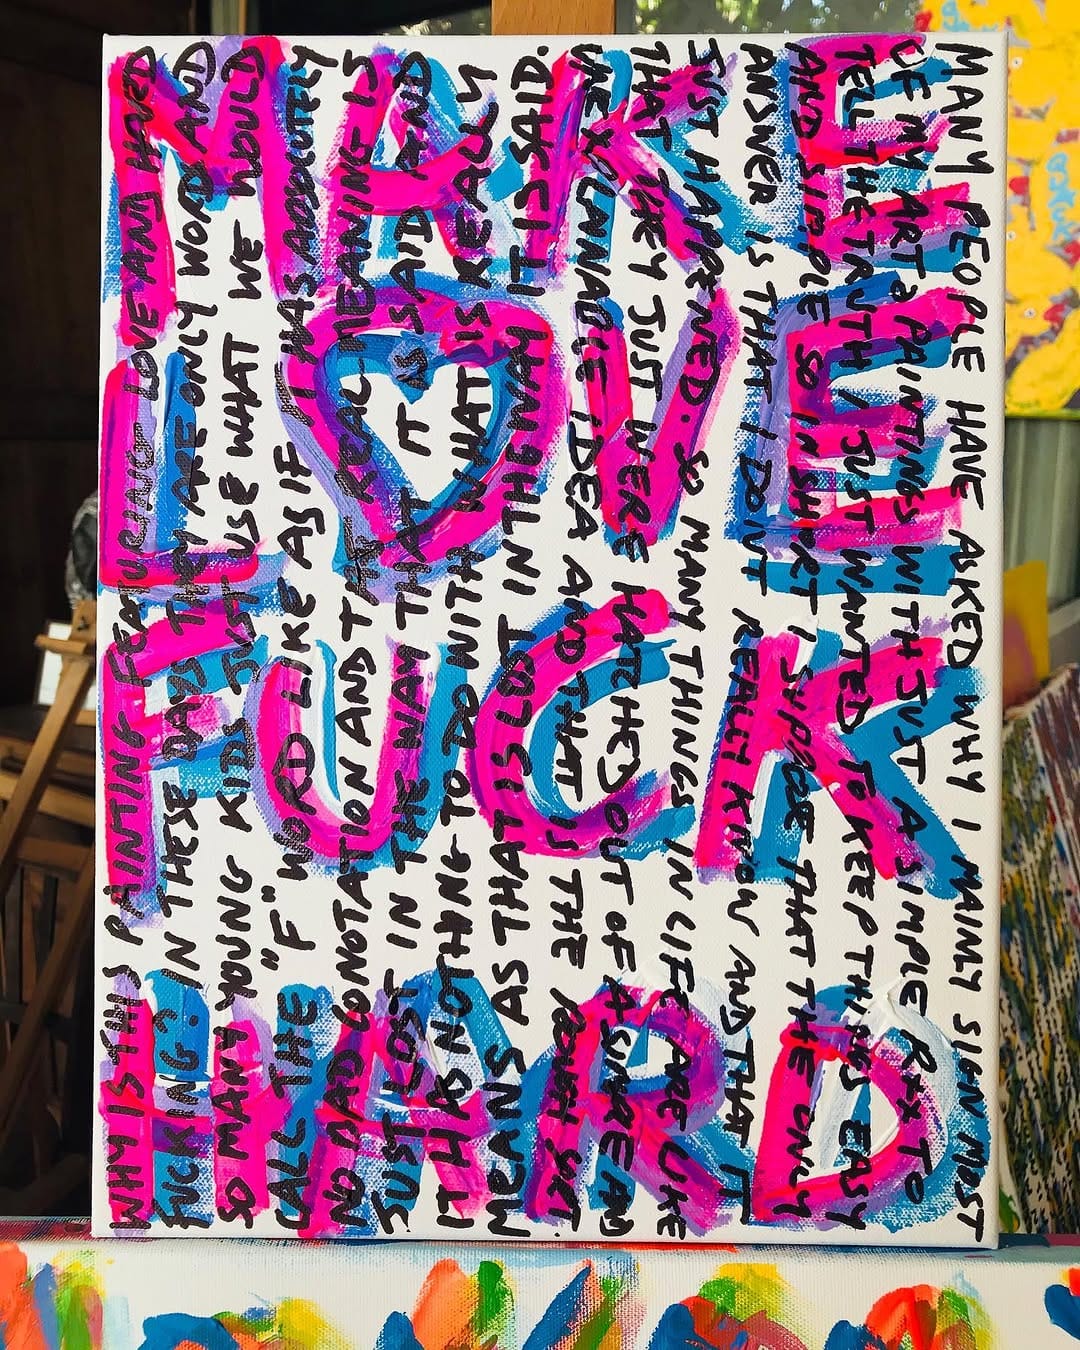 MAKE
LOVE
FUCK
HARD
WHY IS THIS PAINTING FEATURING LOVE AND HARD
FUCKING? IN THESE DAYS THEY ARE ONLY WORD AND
SO MANY YOUNG KIDS JUST USE WHAT WE WOULD
CALL THE "F" WORD LIKE AS IF IT HAS ABSOLUTELY
NO BAD CONOTATION AND THE REAL MEANING IS
JUST LOST IN THE WAY THAT IT IS SAID AND
IT HAS NOTHING TO DO WITH WHAT IS REALLY
MEANS AS THAT IS LOST IN THE WAY IT IS SAID.
MANY PEOPLE HAVE ASKED WHY I MAINLY SIGN MOST
OF MY ART & PAINTINGS WITH JUST A SIMPLE RXX TO
TELL THE TRUTH I JUST WANTED TO KEEP THINGS EASY
AND SIPPLE SO IN SHORT I SUPPOSE THAT THE ONLY
ANSWER IS THAT I DONT REALLY KNOW AND THAT IT
JUST HAPPENED. SO MANY THINGS IN LIFE ARE LIKE
THAT THEY JUST WERE HATCHED OUT OF A
IDEA AND THAT IS THE